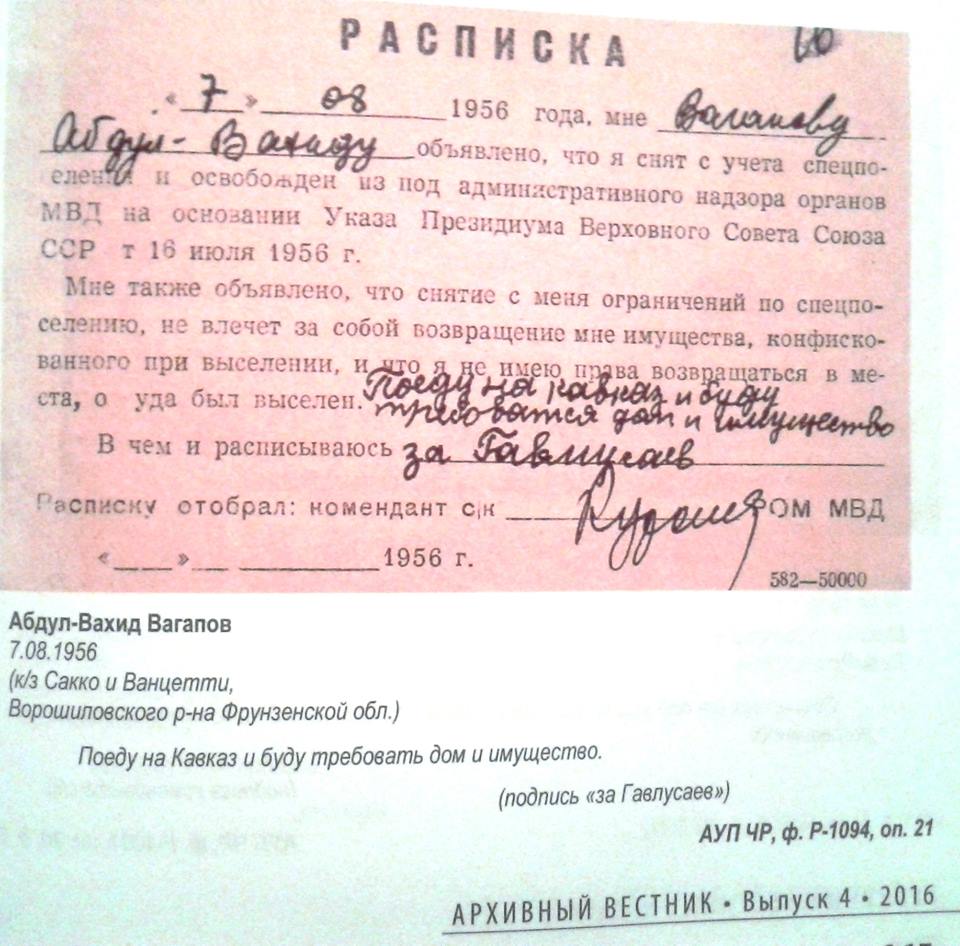 РАСПИСКА
« 7 » 08 1956 года, мне Вагапову
Абдул-Вахиду объявлено, что я снят с учета спецпо-
еления и освобожден из под административного надзора органов
МВД на основании Указа Президиума Верховного Совета Союза
ССР т 16 июля 1956 г.
Мне также объявлено, что снятие с меня ограничений по спецпо-
селению, не влечет за собой возвращение мне имущества, конфиско-
ванного при выселении, и что я не имею права возвращаться в ме-
ста, о уда был выселен. Поеду на кавказ и буду
требоватся дом и имущество
В чем и расписываюсь за Гавлусаев
Расписку отобрал: комендант с/к РОМ МВД
« » 1956 г.
582—50000
Абдул-Вахид Вагапов
7.08.1956
(к/з Сакко и Ванцетти,
Ворошиловского р-на Фрунзенской обл.)
Поеду на Кавказ и буду требовать дом и имущество.
(подпись «за Гавлусаев»)
АУП ЧР, ф. Р-1094, оп. 21
АРХИВНЫЙ ВЕСТНИК • Выпуск 4 • 2016